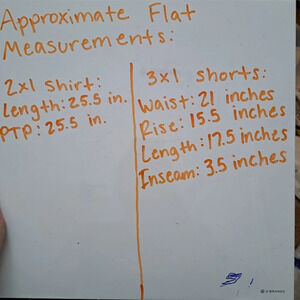 Approximate Flat
Measurements:
2x1 Shirt:
Length: 25.5 in.
PTP: 25.5 in.
3x1 shorts:
Waist: 21 inches
Rise: 15.5 inches
Length: 17.5 inches
Inseam: 3.5 inches